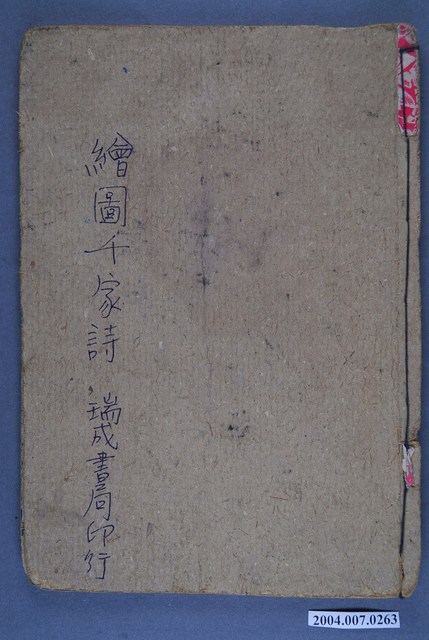 繪圖千家詩 瑞成書局印行
2004.007.0263